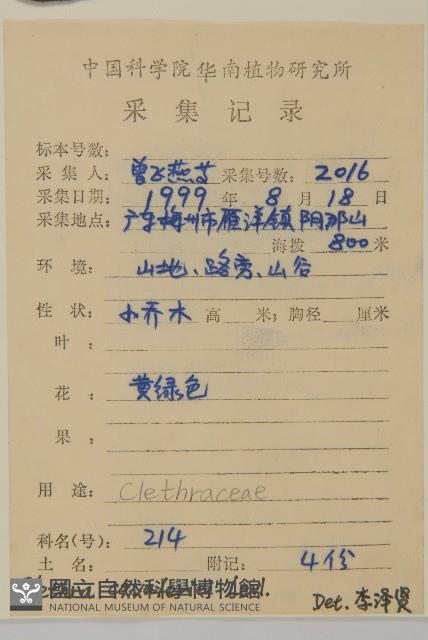 中国科学院华南植物研究所
采集记录
标本号数：
采集人：曾飞燕等 采集号数：2016
采集日期：1999年8月18日
采集地点：广东梅州市雁洋镇阴那山
海拨800米
环境：山地、路旁、山谷
性状：小乔木 高 米；胸径 厘米
叶：
花：黄绿色
果：
用途：Clethraceae
科名(号)：214
土名： 附记：4份
國立自然科學博物館
NATIONAL MUSEUM OF NATURAL SCIENCE
Det. 李泽贤